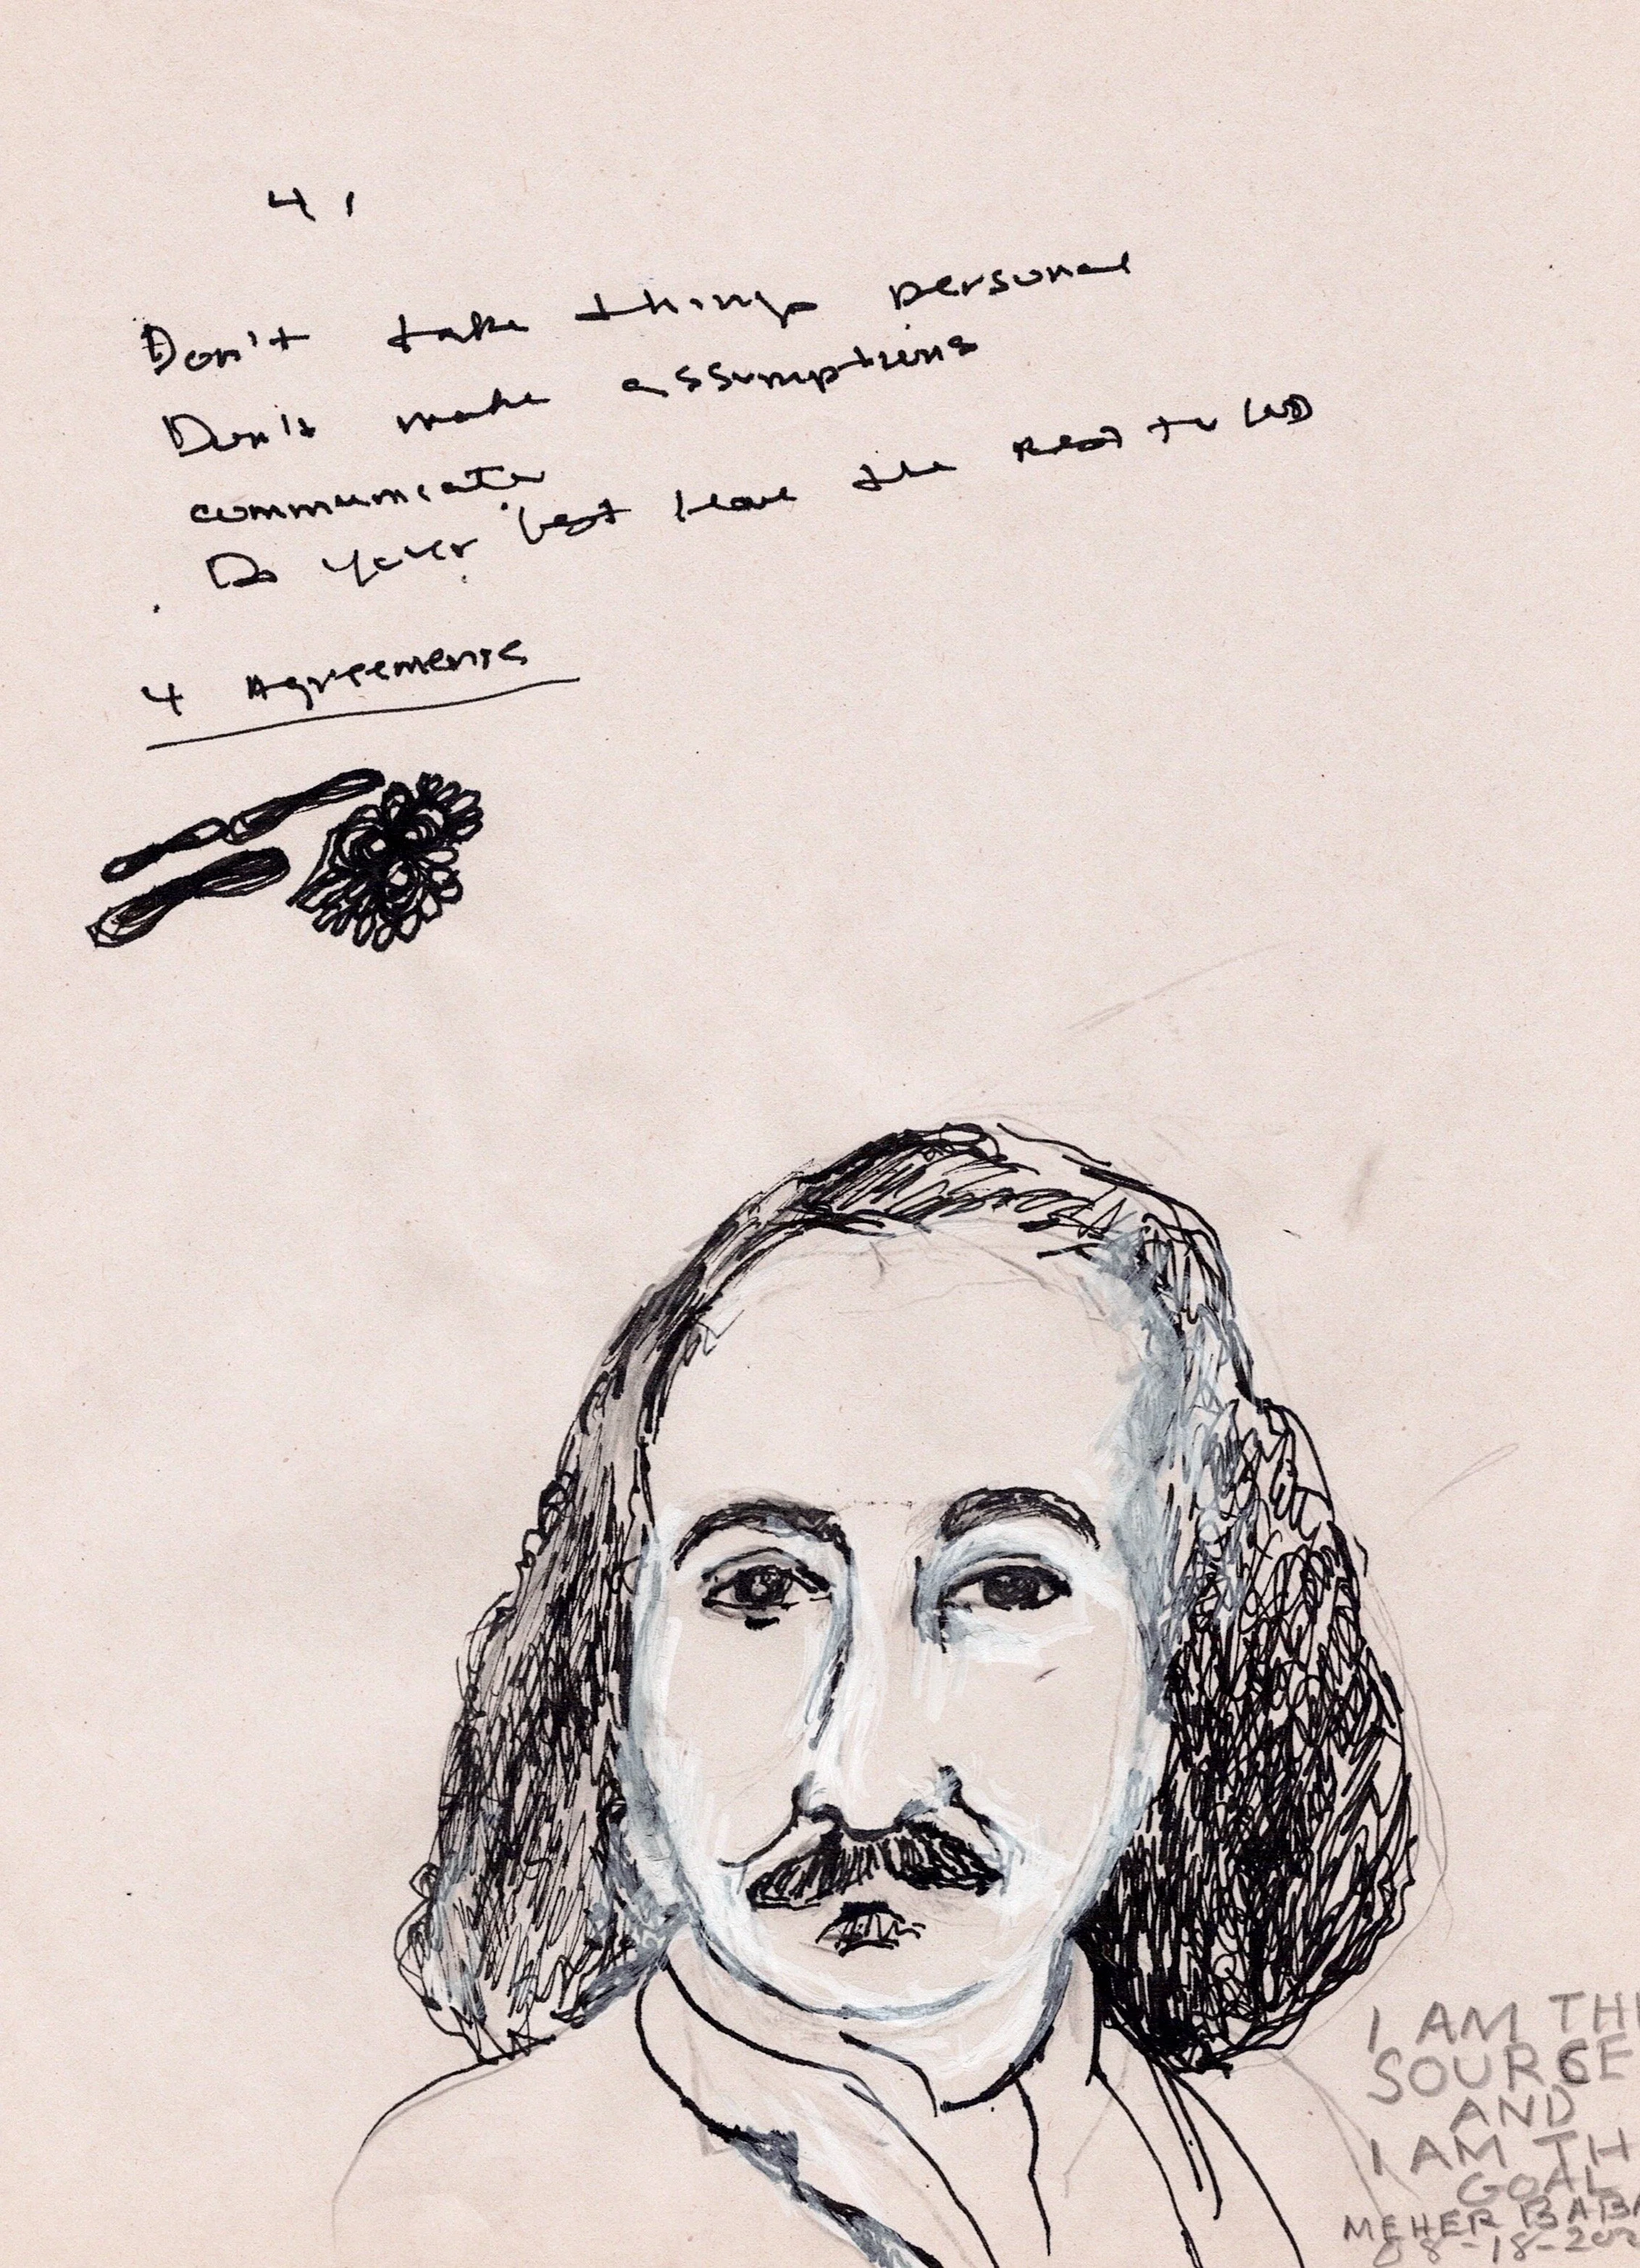 4 1
Don't take things personal
Don't make assumptions
communicate
Do your best leave the rest to
4 Agreements
I AM TH
SOURCE
AND
I AM TH
GOAL
MEHER BABA
08-18-20